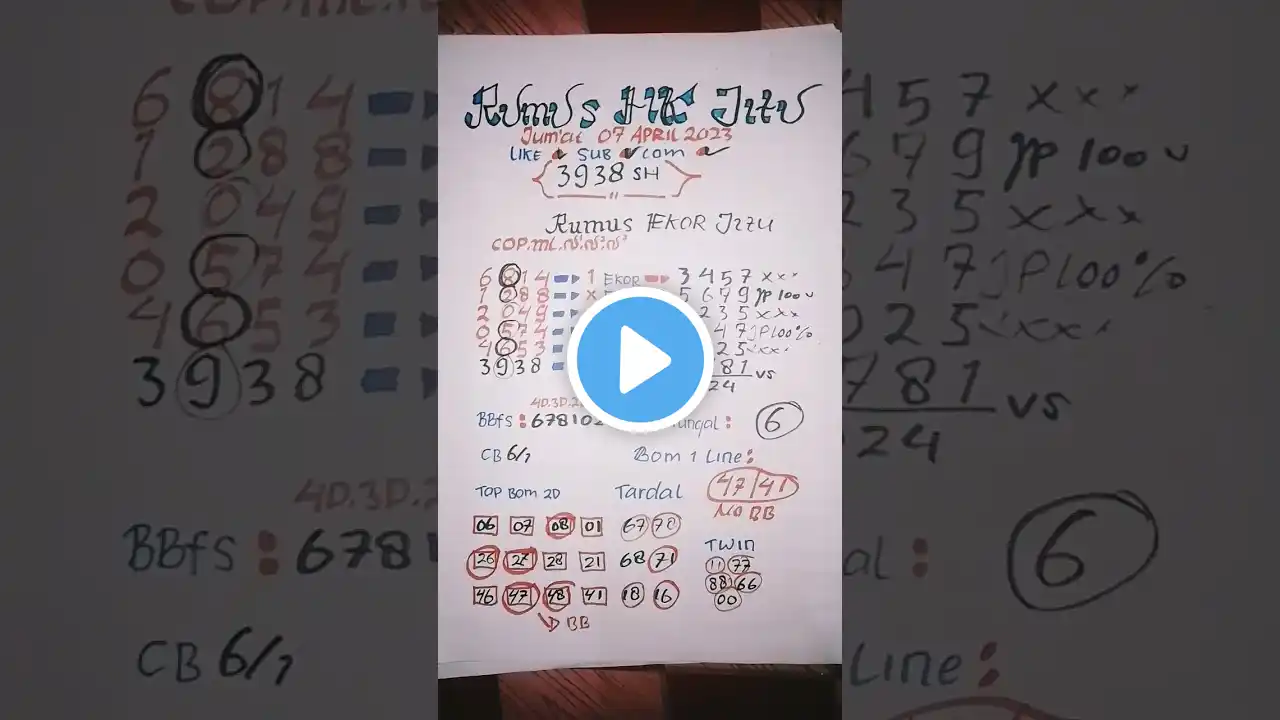 Rumus HK Jitu
Jum'at 07 APRIL 2023
LIKE SUB COM
3938 SH
Rumus EKOR Jitu
COP.ML.
6814 1 EKOR 3457 xxx
1288 x 5679 JP 100
2049 235 xxx
0574 47 JP100%
4653 25 xxx
3938 781 vs
24
4D.3D.2
BBfs : 67810 ungal : 6
CB 6/1 Bom 1 Line :
47/41
NO BB
TOP BOM 2D Tardal
06 07 08 01 67 78
26 27 28 21 68 71
46 47 48 41 18 16
BB
TWIN
11 77
88 66
00